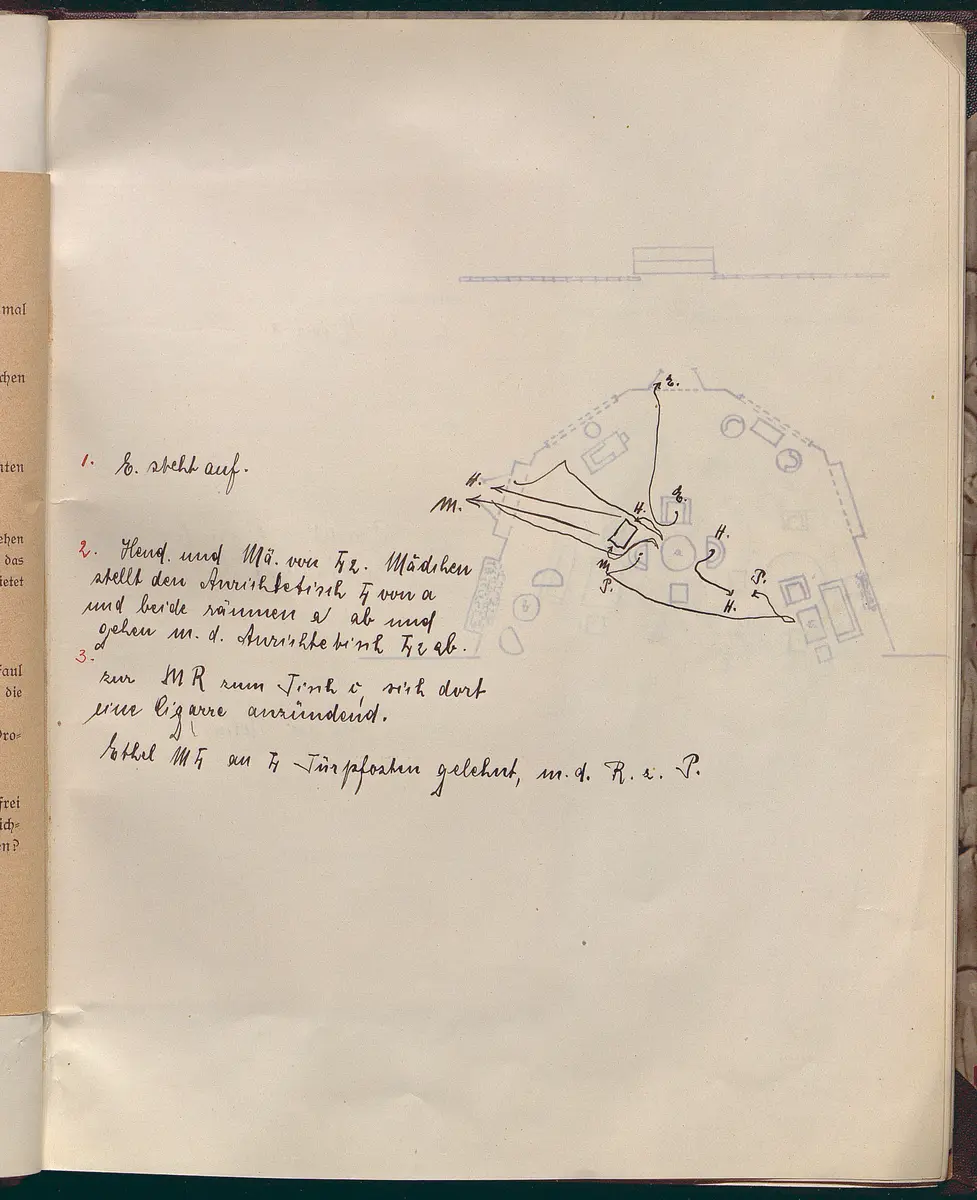 mal
chen
nten
ehen
das
ietet
Paul
die
Pro=
frei
ich=
en?
1. E. steht auf.
2. Hend. und Mä. von L2. Mädchen
stellt den Anrichtetisch L von a
und beide räumen a ab und
gehen m. d. Anrichtetisch L2 ab.
3.
zur MR zum Tisch i, sich dort
eine Cigarre anzündend.
Ethel ML an L Türpfosten gelehnt, m. d. R. z. P.
E.
H.
M.
E.
H.
H.
a
M
P.
P.
H.